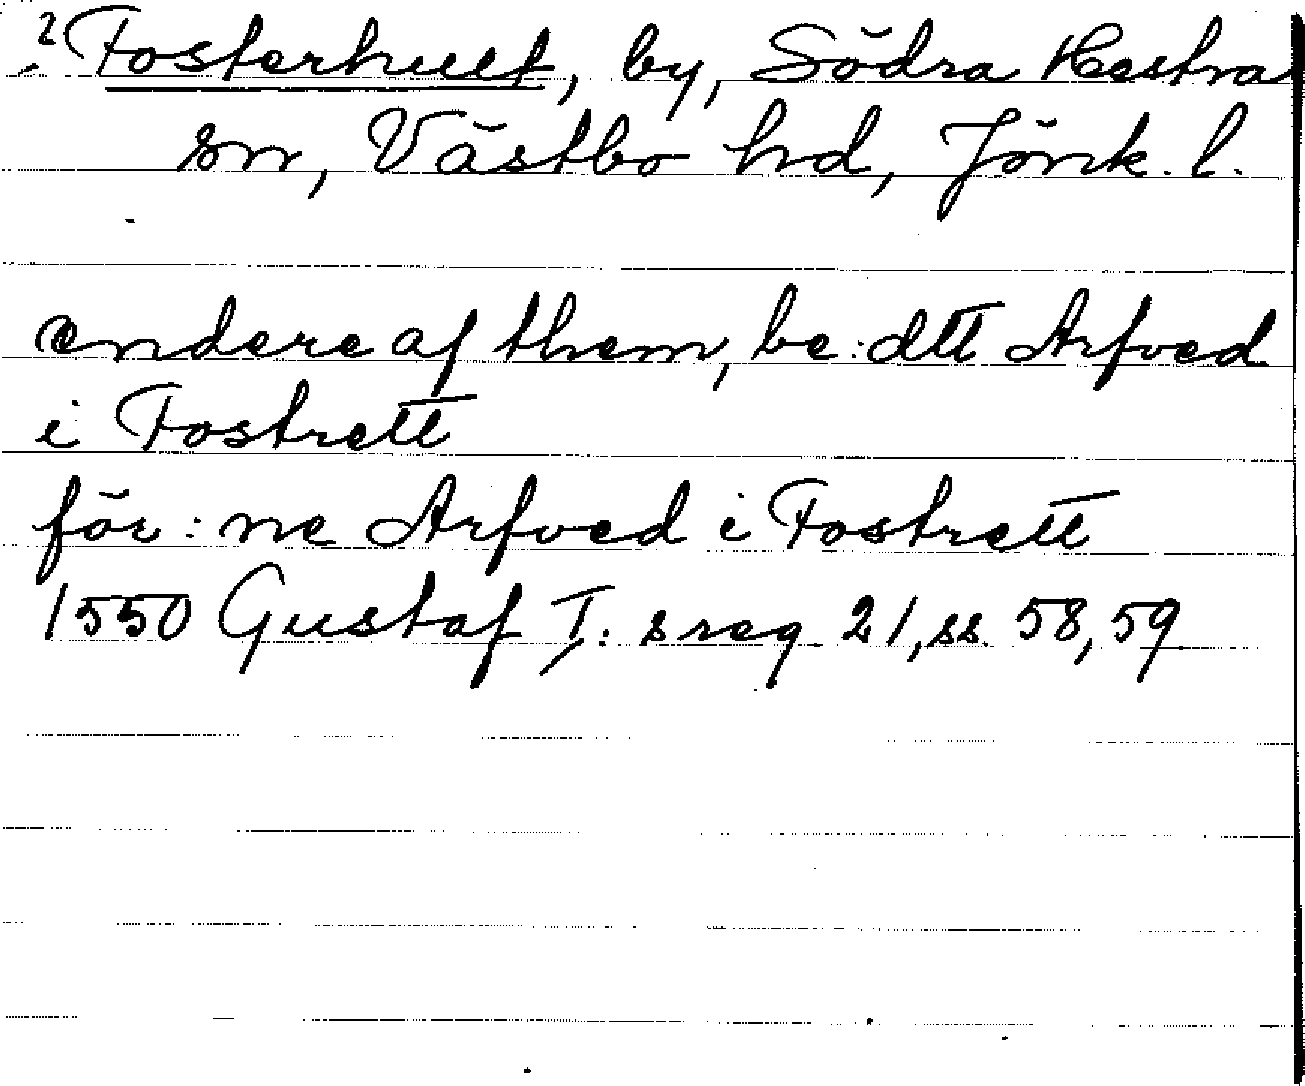 ? Fosterhult, by, Södra Hestra
sn, Västbo hd, Jönk. l.
endere af them, be:dtt Arfved
i Fostrett
för:ne Arfved i Fostrett
1550 Gustaf I:s reg. 21, ss. 58, 59